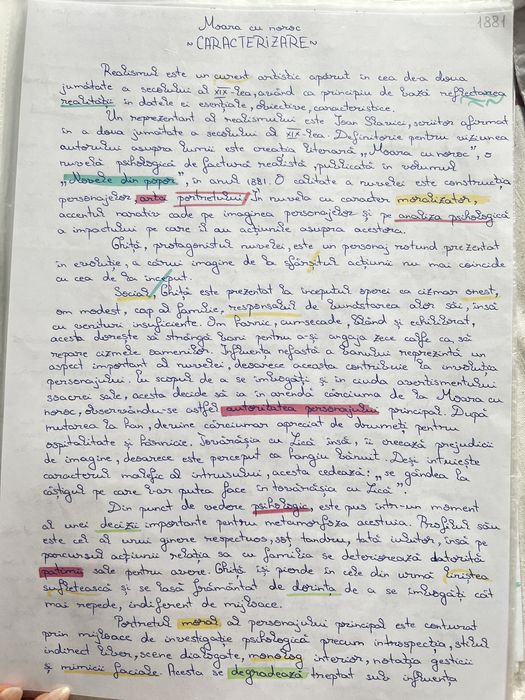 1881
Moara cu noroc
~CARACTERIZARE~
Realismul este un curent artistic apărut în cea de-a doua
jumătate a secolului al XIX-lea, având ca principiu de bază reflectarea
realității în datele ei esențiale, obiective, caracteristice.
Un reprezentant al realismului este Ioan Slavici, scriitor afirmat
în a doua jumătate a secolului al XIX-lea. Definitorie pentru viziunea
autorului asupra lumii este creația literară „Moara cu noroc", o
nuvelă psihologică de factură realistă, publicată în volumul
„Novele din popor", în anul 1881. O calitate a nuvelei este construcția
personajelor, arta portretului. În nuvela cu caracter moralizator,
accentul narativ cade pe imaginea personajelor și pe analiza psihologică
a impactului pe care îl au acțiunile asupra acestora.
Ghiță, protagonistul nuvelei, este un personaj rotund prezentat
în evoluție, a cărui imagine de la sfârșitul acțiunii nu mai coincide
cu cea de la început.
Social, Ghiță este prezentat la începutul operei ca cizmar onest,
om modest, cap al familie, responsabil de bunăstarea alor săi, însă
cu venituri insuficiente. Om harnic, cumsecade, blând și echilibrat,
acesta dorește să strângă bani pentru a-și angaja zece calfe ca, să
repare cizmele oamenilor. Influența nefastă a banului reprezintă un
aspect important al nuvelei, deoarece aceasta contribuie la involuția
personajului. În scopul de a se îmbogăți și în ciuda avertismentului
soacrei sale, acesta decide să ia în arendă cârciuma de la Moara cu
noroc, observându-se astfel autoritatea personajului principal. După
mutarea la han, devine cârciumar apreciat de drumeți pentru
ospitalitate și hărnicie. Tovărășia cu Lică însă, îi creează prejudicii
de imagine, deoarece este perceput ca hangiu bănuit. Deși intuiește
caracterul malefic al intrusului, acesta cedează: „se gândea la
câștigul pe care l-ar putea face în tovărășia cu Lică".
Din punct de vedere psihologic, este pus într-un moment
al unei decizii importante pentru metamorfoza acestuia. Profilul său
este cel al unui ginere respectuos, soț tandru, tată iubitor, însă pe
parcursul acțiunii relația sa cu familia se deteriorează datorită
patimii sale pentru avere. Ghiță își pierde în cele din urmă liniștea
sufletească și se lasă frământat de dorința de a se îmbogăți cât
mai repede, indiferent de mijloace.
Portretul moral al personajului principal este conturat
prin mijloace de investigație psihologică precum introspecția, stilul
indirect liber, scene dialogate, monolog interior, notația gesticii
și mimicii faciale. Acesta se degradează treptat sub influența